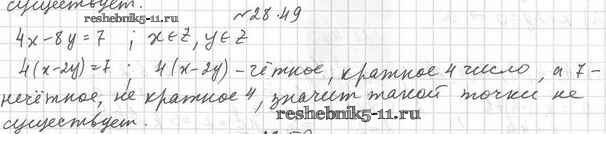 существует.
№28.49
reshebnik5-11.ru
4x-8y=7 ; x∈Z, y∈Z
4(x-2y)=7 ; 4(x-2y) - чётное, кратное 4 число, а 7-
нечётное, не кратное 4, значит такой точки не
существует.
reshebnik5-11.ru